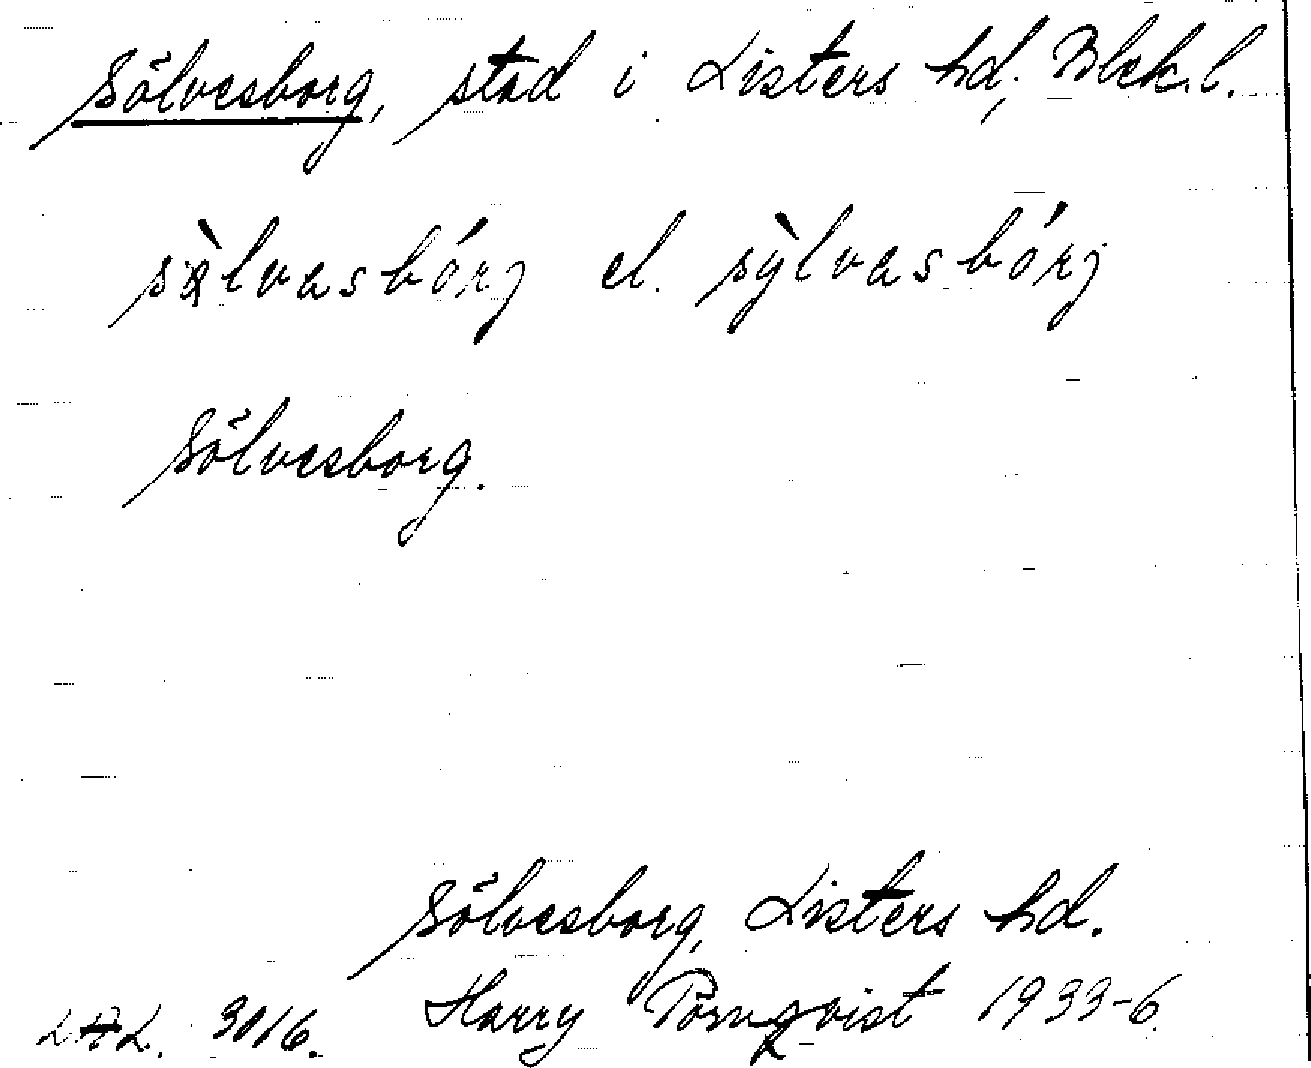 Sölvesborg, stad i Listers hd, Blek.l.
sàlvasbórj el. sỳlvasbórj
Sölvesborg.
Sölvesborg, Listers hd.
LAL. 3016. Harry Pörnqvist 1933-6.